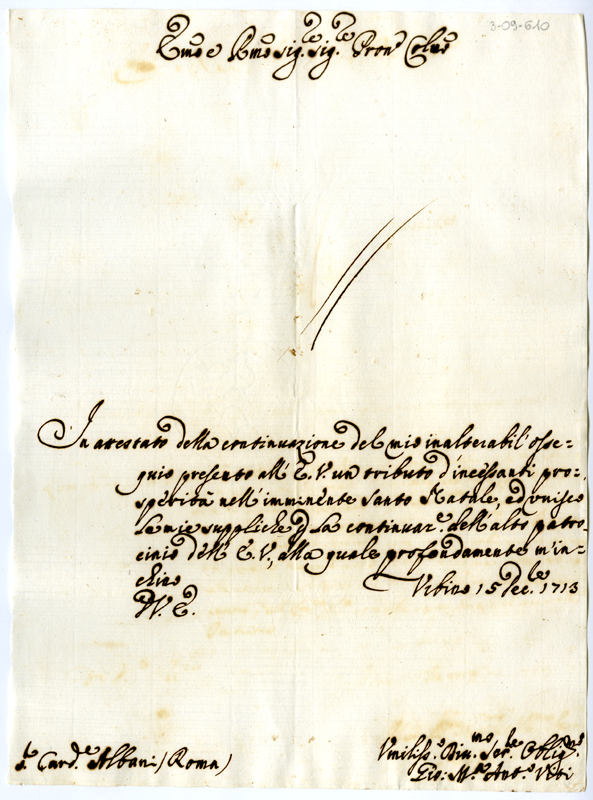 3-09-610
Emo e Rmo Sig.re Sig.re Pron Colmo
In attestato della continuazione del mio inalterabil' osse=
quio presento all' E. V. un tributo d'incessanti pro=
sperità nell' imminente Santo Natale, ed unisco
le mie suppliche p la continuaz.e dell' alto patro=
cinio dell' E. V., alla quale profondamente m'in=
chino
D. V. E.
Vrbino 15 Dec.bre 1713
S.r Card.le Albani (Roma)
Vmiliss.o Diu.mo Ser.re Oblig.mo
Gio: M.a Ant.o Vibi